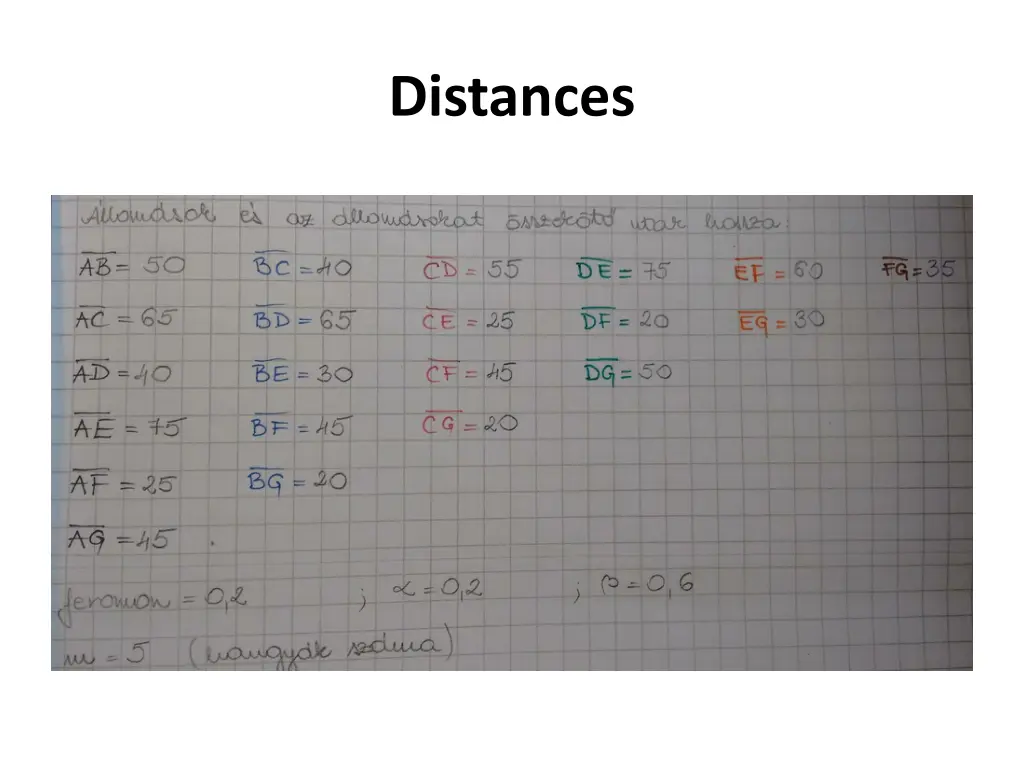 Distances
Állomások és az állomásokat összekötő utak hossza:
AB = 50 BC = 40 CD = 55 DE = 75 EF = 60 FG = 35
AC = 65 BD = 65 CE = 25 DF = 20 EG = 30
AD = 40 BE = 30 CF = 45 DG = 50
AE = 75 BF = 45 CG = 20
AF = 25 BG = 20
AG = 45
feromon = 0,2 ; α = 0,2 ; β = 0,6
m = 5 (hangyák száma)